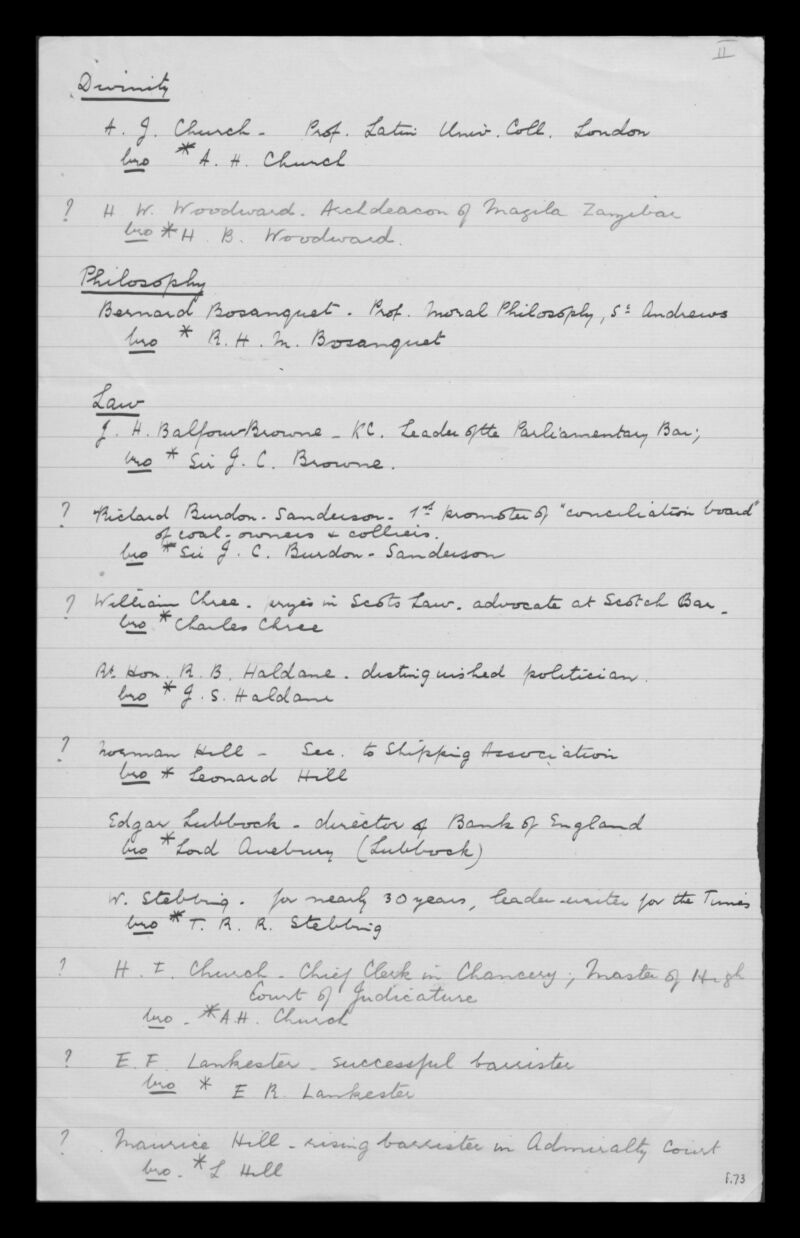 II
Divinity
A. J. Church - Prof. Latin Univ. Coll. London
bro * A. H. Church
? H. W. Woodward. Archdeacon of Magila Zanzibar
bro * H. B. Woodward.
Philosophy
Bernard Bosanquet. Prof. Moral Philosophy, St Andrews
bro * R. H. M. Bosanquet
Law
J. H. Balfour-Browne - KC. Leader of the Parliamentary Bar;
bro * Sir J. C. Browne.
? Richard Burdon-Sanderson - 1st promoter of "conciliation board"
of coal-owners & colliers.
bro * Sir J. C. Burdon-Sanderson
? William Chree. in Scots Law. advocate at Scotch Bar.
bro * Charles Chree
Rt Hon. R. B. Haldane. distinguished politician.
bro * J. S. Haldane
? Norman Hill - Sec. to Shipping Association
bro * Leonard Hill
Edgar Lubbock - director of Bank of England
bro * Lord Avebury (Lubbock)
W. Stebbing. for nearly 30 years, leader-writer for the Times
bro * T. R. R. Stebbing
? H. F. Church - Chief Clerk in Chancery; Master of High
Court of Judicature
bro - * A.H. Church
? E. F. Lankester - successful barrister
bro * E R. Lankester
? Maurice Hill - rising barrister in Admiralty Court
bro. * L Hill
f.73